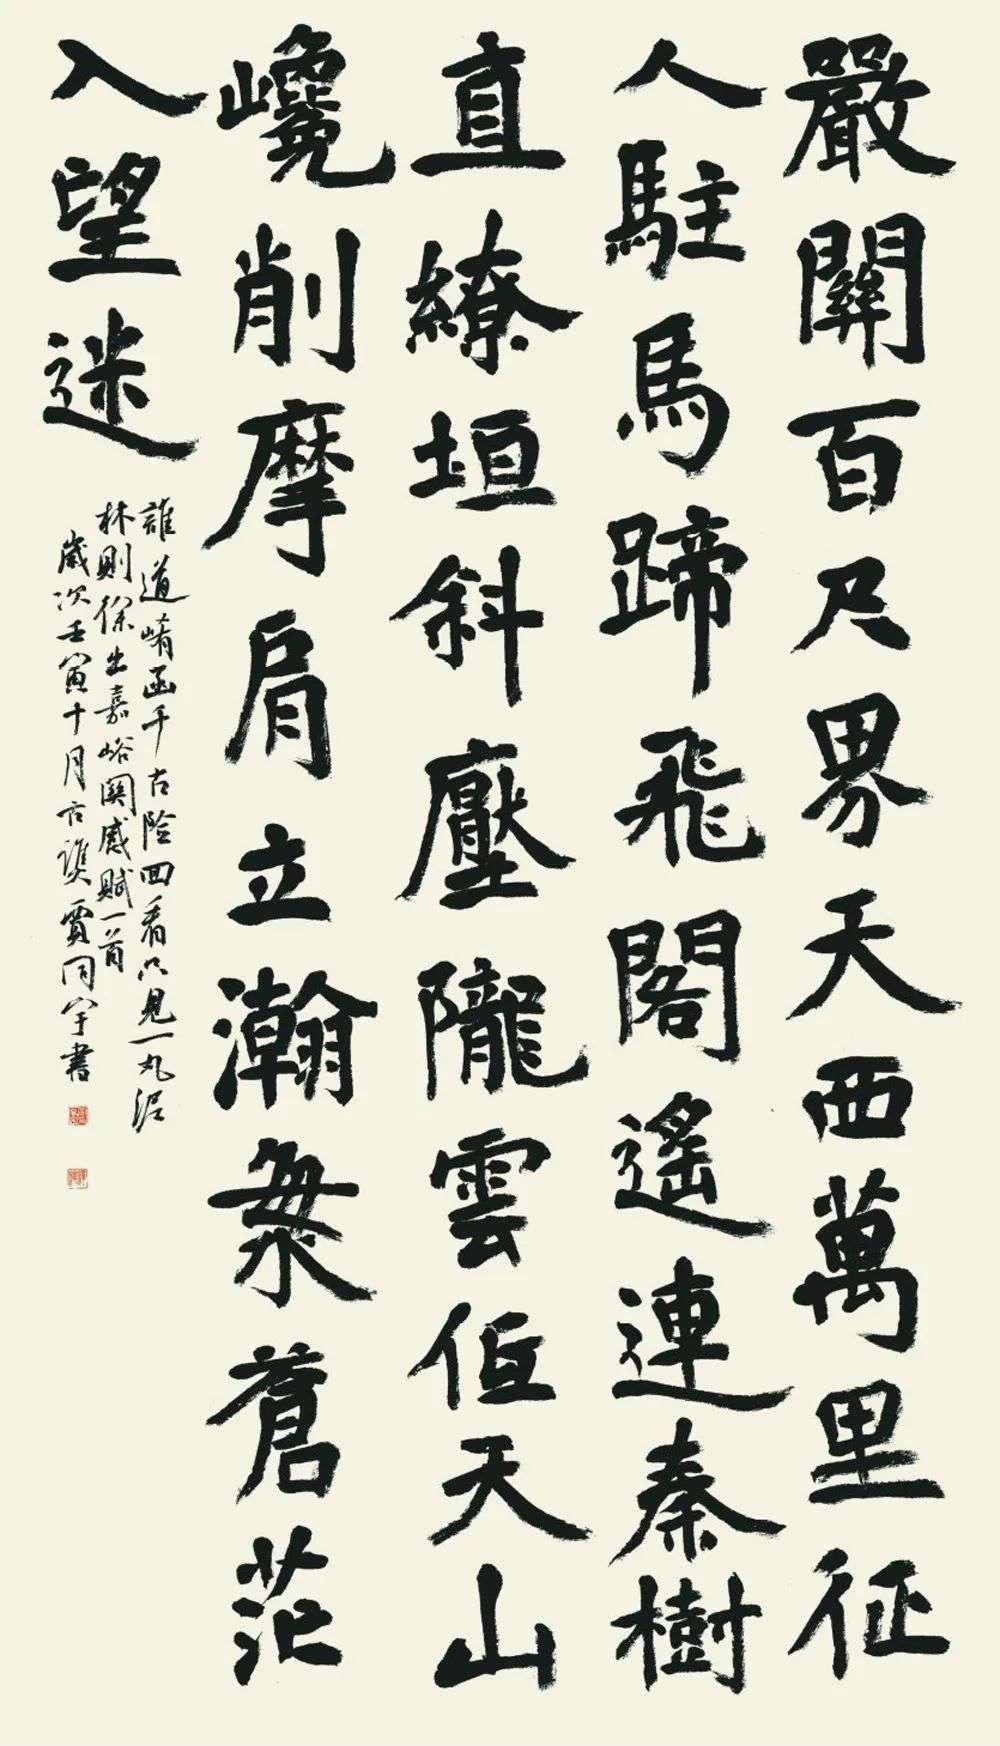 嚴關百尺界天西萬里征
人駐馬蹄飛閣遙連秦樹
直繚垣斜壓隴雲低天山
巉削摩肩立瀚海蒼茫
入望迷
誰道崤函千古險回看只見一丸泥
林則徐出嘉峪關感賦一首
歲次壬寅十月古譙賈同宇書